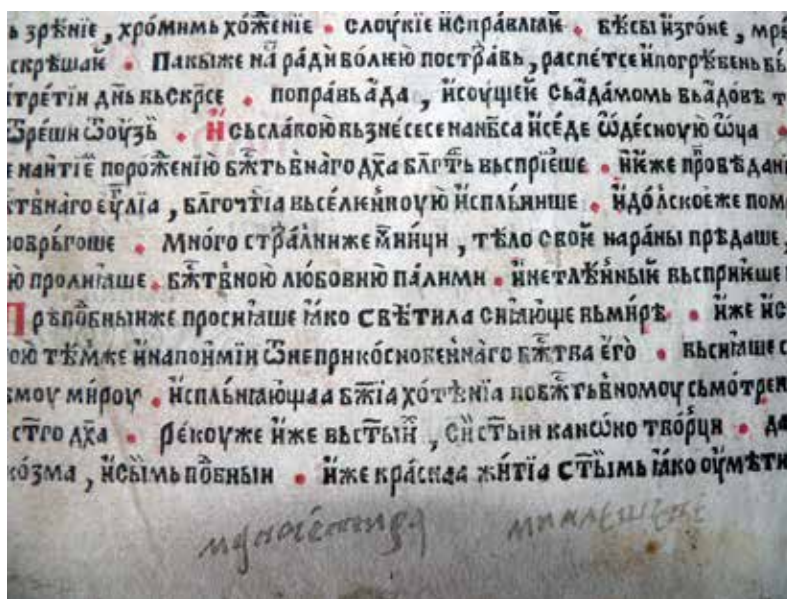 ь зрѣ́нїе , хро́мимь хож҃е́нїе • слоу́кїе и҆справлꙗ́й • бѣ́сы и҆зго́не , мрь
скрѣша́й • Па́кыже на́ ради во́лею постра́вь , распе́тсе и҆погрѣ́бень бы
трет́їи дн҃ь вьскр҃се • попра́вь а҆́да , и҆соу́щей сьа҆да́момь вьа҆́довѣ т
ѿрѣши ѿоу́зь • И҆ сьсла́вою вьзне́сесе нан҃бса и҆сѣ́де ѡ҆десно́ую ѿца •
е наи́тїе поро́женїю бж҃тьвнаго дх҃а блг҃ть вьспрїе́ше • и҆́йже провѣ́дани
ст҃внаго еѵ҃лїа , блг҃оч҃тїа вьселе́нноую и҆спль́нише • и҆́дѡлскоеже пом
ловрь́гоше • Мно́го стра́лниже м҃ници , тѣ́ло свои на ра́ны прѣ́даше ,
ю̀ пролиꙗ́ше • бж҃твною любо́вию па́лими • и҆нетлѣ́нныѝ вьсприе́ше
Прѣпо́бныиже просиꙗ́ше ꙗ҆́ко свѣти́ла сиꙗ́юще вьми́рѣ • и҆́же и҆с
ою̀ тѣ́мже и҆напои́мїи ѿнеприкосно́веннаго бж҃тва е҆го̀ • вьсиꙗ́ше с
емоу ми́роу • и҆спльнꙗ́ющаа бж҃їа хотѣ́нїа побж҃тьвномоу сьмо́трен
ст҃го дх҃а • ре́коуже и҆́же вьст҃ыи́ , сїи́ ст҃ыи кано́ѡно тво́рци • да
ко́зма , и҆сьи́мь по́бныи • и҆́же кра́снаа жи́тїа ст҃ы́мь ꙗ҆́ко оу҆мѣти
милешеве